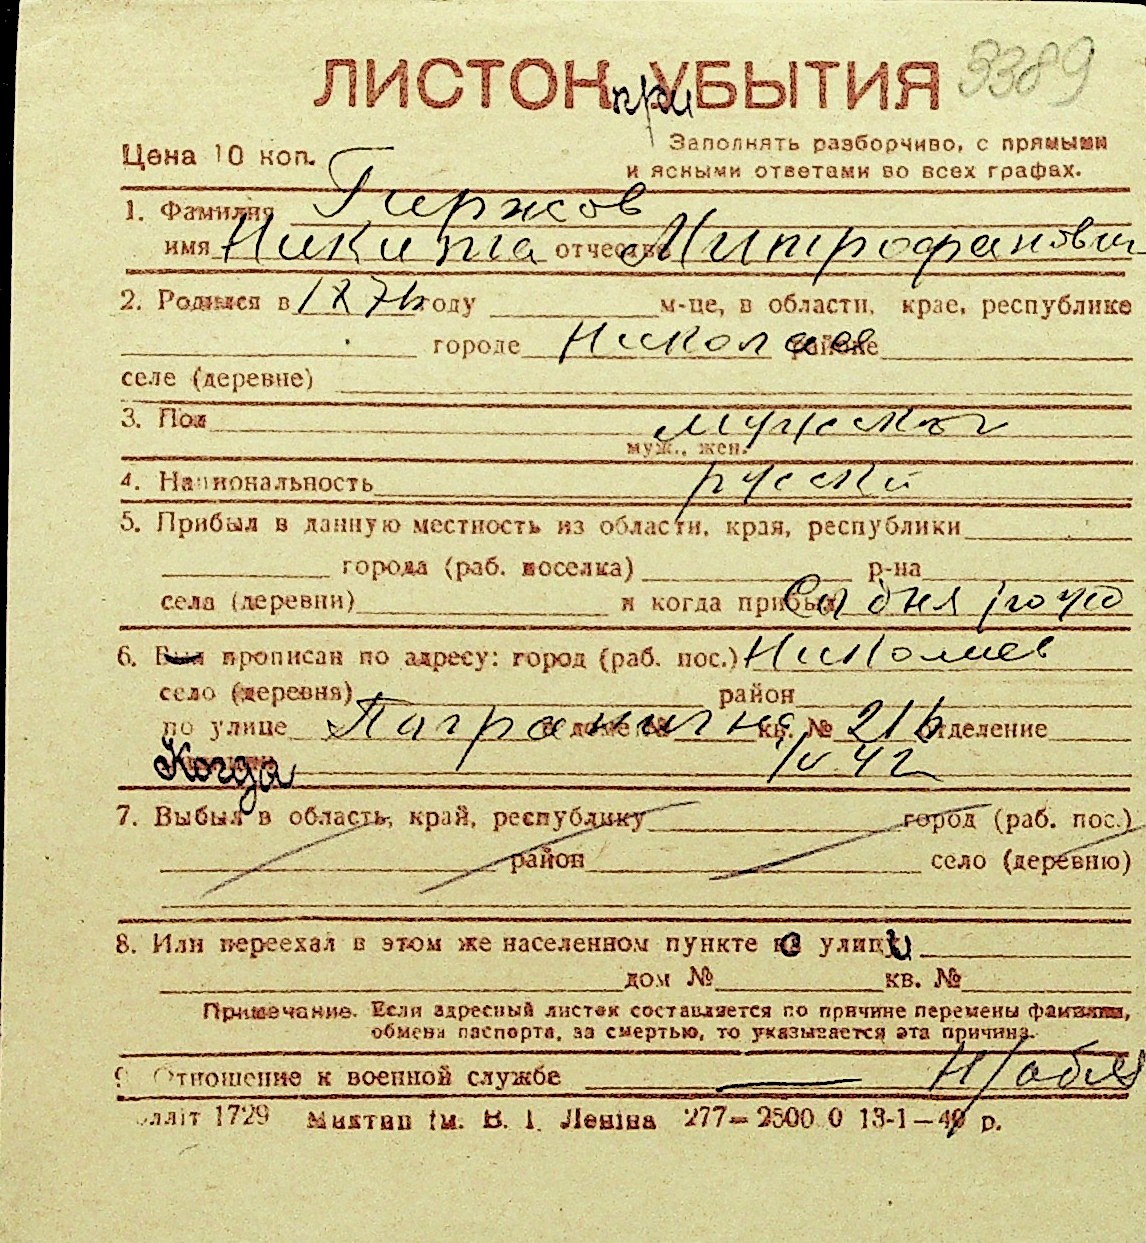 ЛИСТОК при УБЫТИЯ 3389
Цена 10 коп.
Заполнять разборчиво, с прямыми
и ясными ответами во всех графах.
1. Фамилия Гиржов
имя Никита отчество Митрофанович
2. Родился в 1871 году м-це, в области, крае, республике
городе Николаев районе
селе (деревне)
3. Пол мужской
муж., жен.
4. Национальность русский
5. Прибыл в данную местность из области, края, республики
города (раб. поселка) р-на
села (деревни) и когда прибыл Со дня рожд
6. Был прописан по адресу: город (раб. пос.) Николаев
село (деревня) район
по улице Пагранична в доме № кв. № 216 отделение
Когда 42
7. Выбыл в область, край, республику город (раб. пос.)
район село (деревню)
8. Или переехал в этом же населенном пункте с улицы
дом № кв. №
Примечание. Если адресный листок составляется по причине перемены фамилии,
обмена паспорта, за смертью, то указывается эта причина.
9 Отношение к военной службе — Н/обяз
1729 Миктип ім. В. І. Леніна 277—2500 0 13-1—49 р.